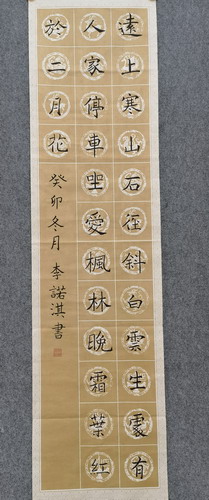 遠上寒山石徑斜白雲生處有
人家停車坐愛楓林晚霜葉紅
於二月花
癸卯冬月 李諾淇書